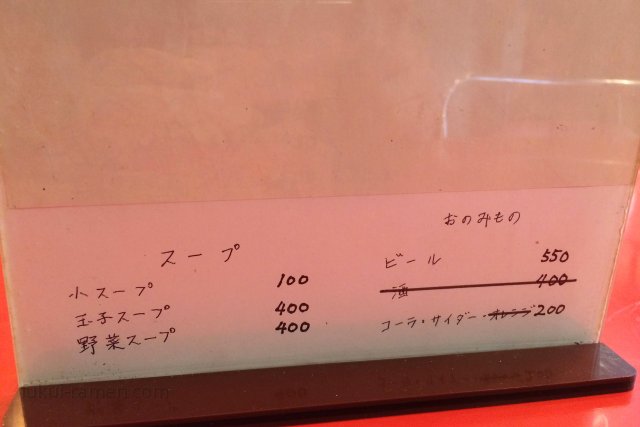 スープ
小スープ 100
玉子スープ 400
野菜スープ 400
おのみもの
ビール 550
酒 400
コーラ・サイダー・オレンジ 200